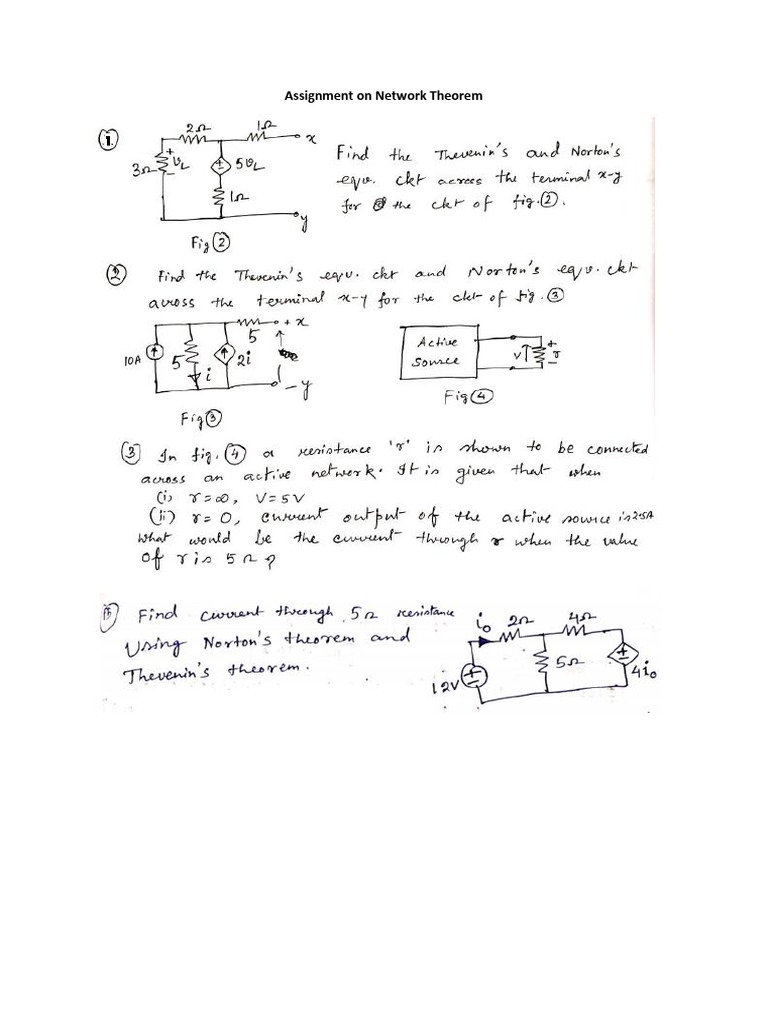 Assignment on Network Theorem
1. 2Ω 1Ω x
3Ω + VL - + - 5VL
1Ω
y
Fig 2
Find the Thevenin's and Norton's
eqv. ckt across the terminal x-y
for the ckt of fig. 2.
2 Find the Thevenin's eqv. ckt and Norton's eqv. ckt
across the terminal x-y for the ckt of fig. 3
10A 5 i 2i 5 + x - y
Fig 3
Active
Source
V + r -
Fig 4
3 In fig. 4 a resistance 'r' is shown to be connected
across an active network. It is given that when
(i) r=∞, V=5V
(ii) r=0, current output of the active source is 2.5A
What would be the current through r when the value
of r is 5Ω?
Find current through 5Ω resistance
Using Norton's theorem and
Thevenin's theorem.
i0 2Ω 4Ω
5Ω + - 4i0
12V + -